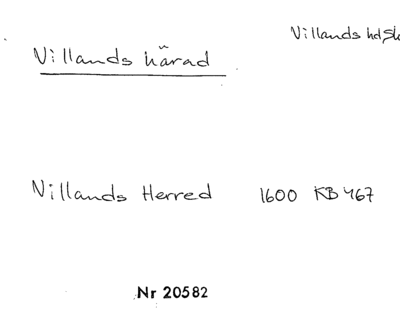 Villands hd Sk
Villands härad
Villands Herred 1600 KB 467
Nr 20582